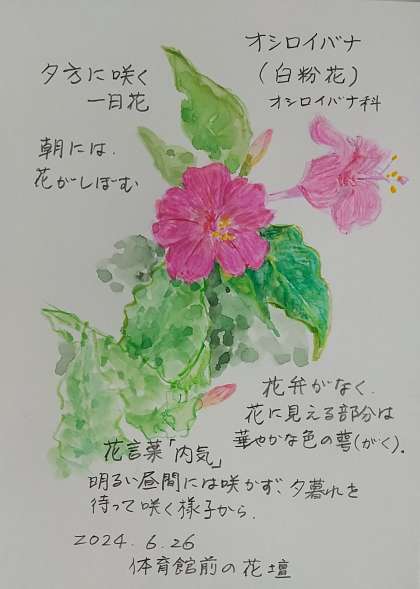 オシロイバナ
(白粉花)
オシロイバナ科
夕方に咲く
一日花
朝には、
花がしぼむ
花弁がなく、
花に見える部分は
華やかな色の萼(がく)。
花言葉「内気」
明るい昼間には咲かず、夕暮れを
待って咲く様子から。
2024.6.26
体育館前の花壇